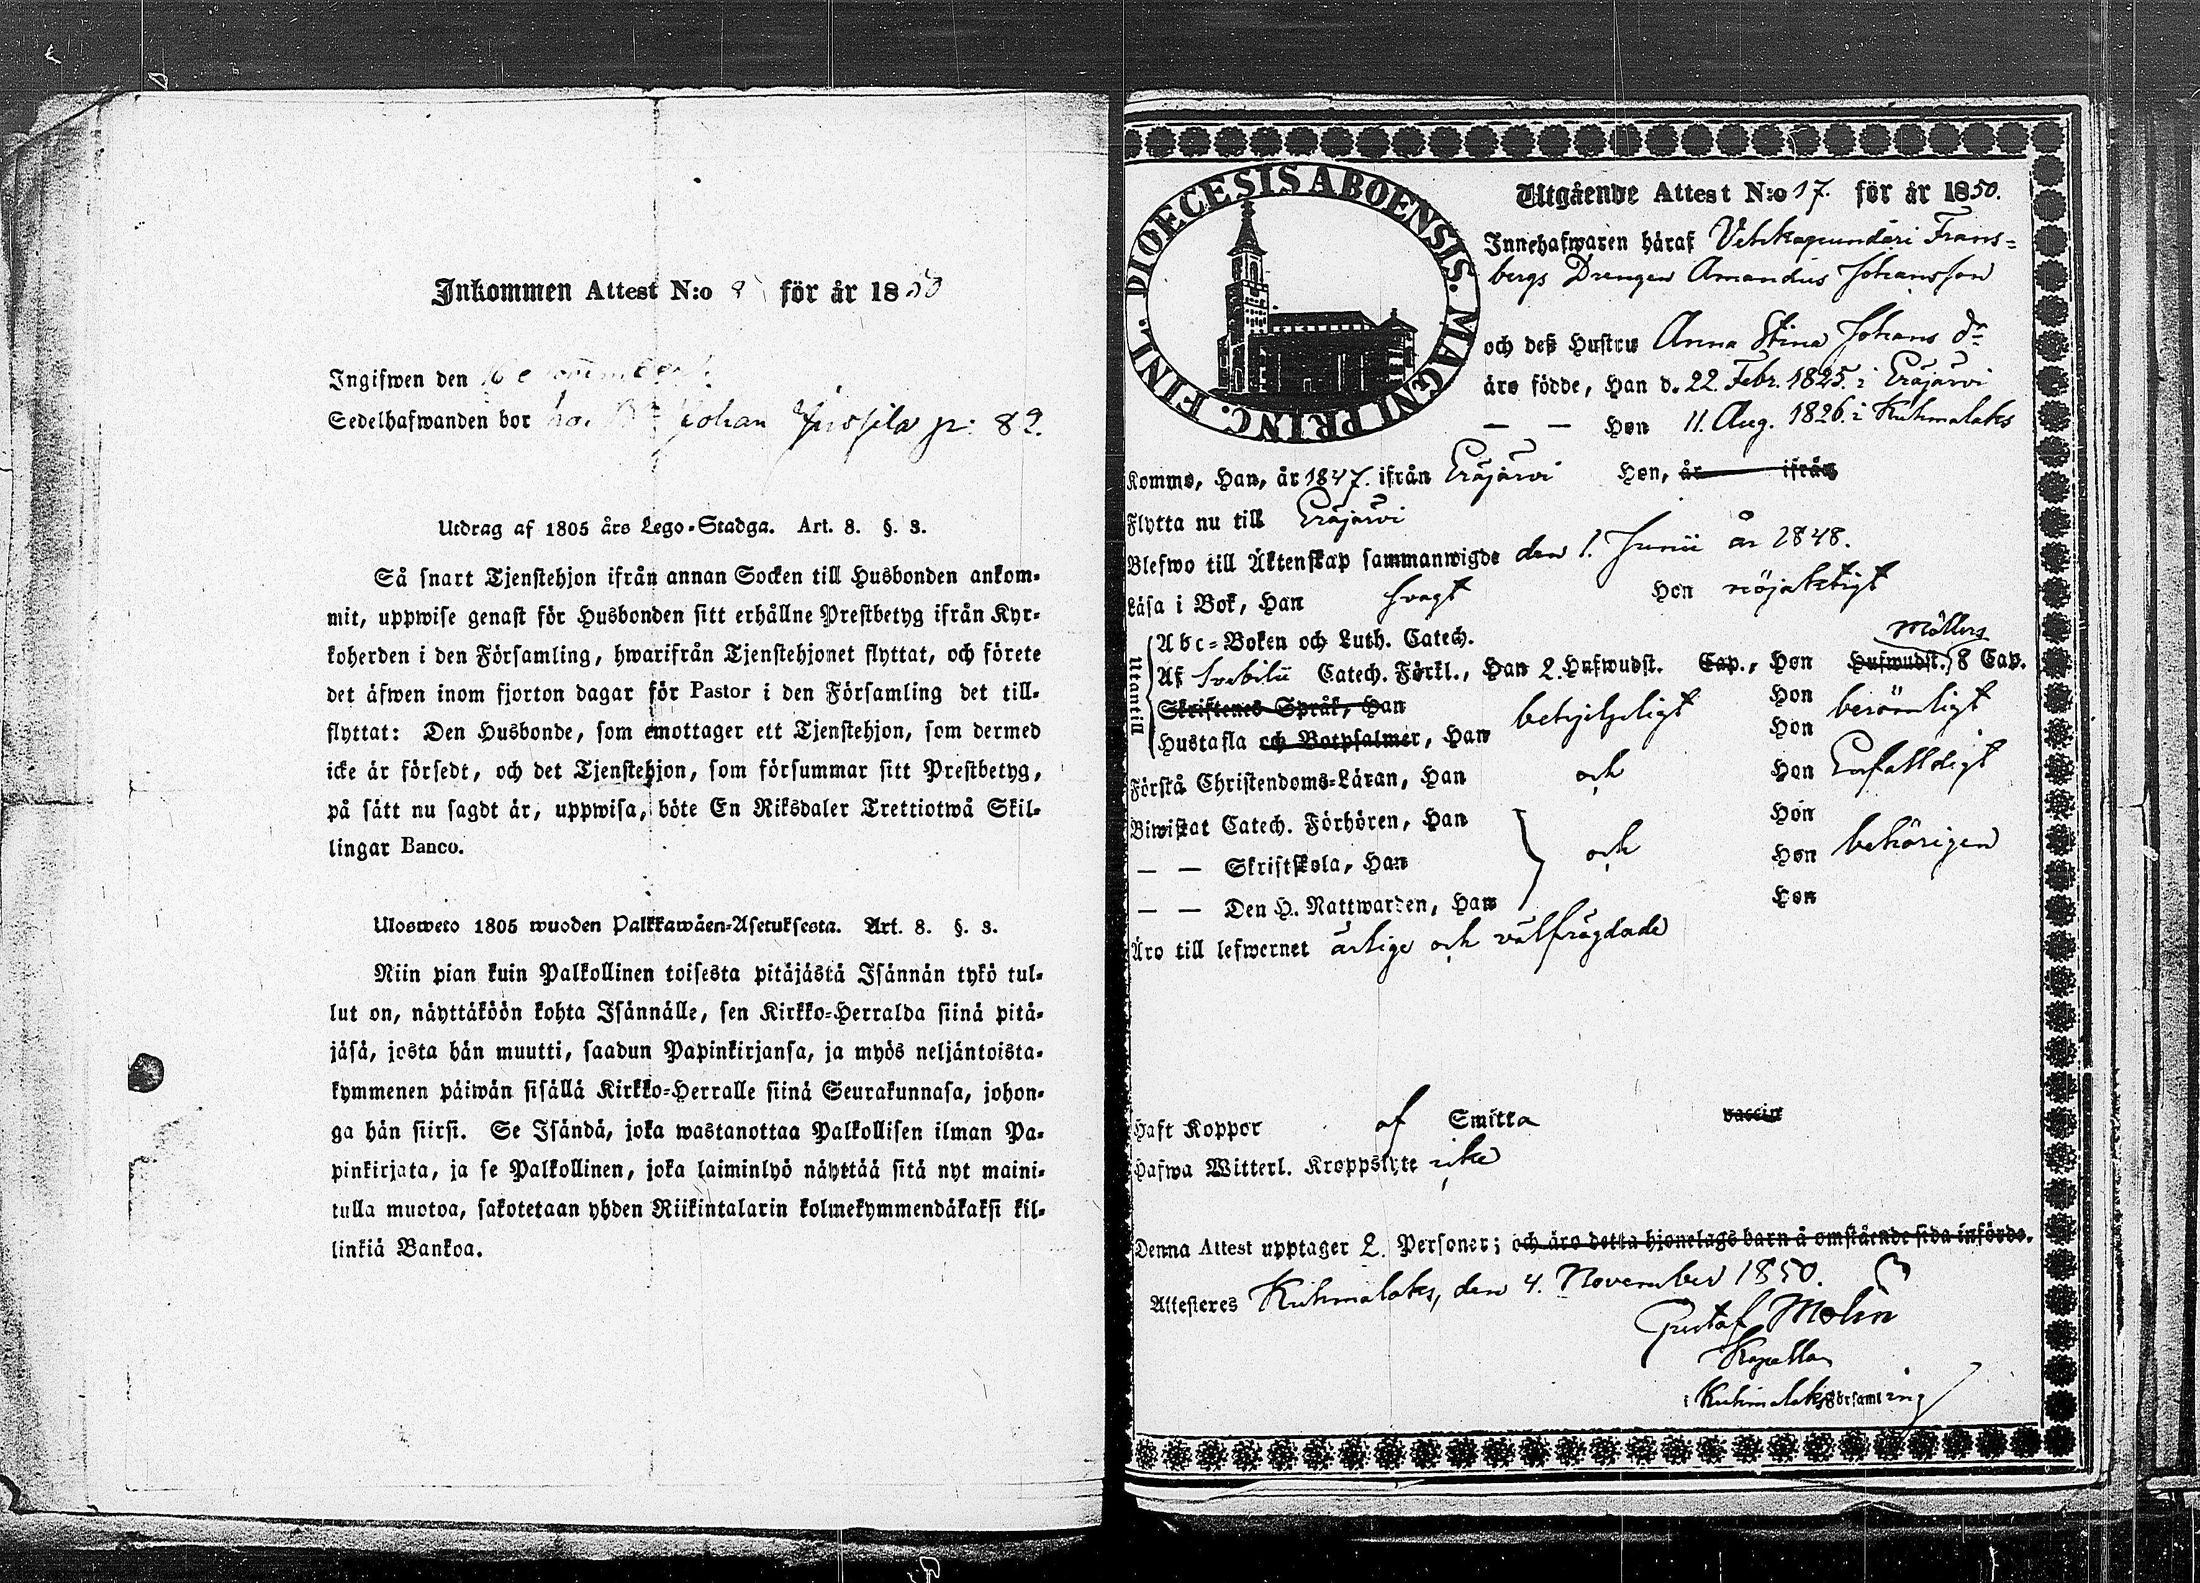 Inkommen Attest N:o för år 1850
Ingifwen den
Sedelhafwanden bor hos Johan p: 82.
Utdrag af 1805 års Lego-Stadga. Art. 8. §. 3.
Så snart Tjenstehjon ifrån annan Socken till Husbonden ankom-
mit, uppwise genast för Husbonden sitt erhållne Prestbetyg ifrån Kyr-
koherden i den Församling, hwarifrån Tjenstehjonet flyttat, och förete
det äfwen inom fjorton dagar för Pastor i den Församling det till-
flyttat: Den Husbonde, som emottager ett Tjenstehjon, som dermed
icke är försedt, och det Tjenstehjon, som försummar sitt Prestbetyg,
på sätt nu sagdt är, uppwisa, böte En Riksdaler Trettiotwå Skil-
lingar Banco.
Ulosweto 1805 wuoden Palkkawäen-Asetuksesta. Art. 8. §. 3.
Niin pian kuin Palkollinen toisesta pitäjästä Isännän tykö tul-
lut on, näyttäköön kohta Isännälle, sen Kirkko-Herralda siinä pitä-
jäsä, josta hän muutti, saadun Papinkirjansa, ja myös neljäntoista-
kymmenen päiwän sisällä Kirkko-Herralle siinä Seurakunnasa, johon-
ga hän siirsi. Se Isändä, joka wastanottaa Palkollisen ilman Pa-
pinkirjata, ja se Palkollinen, joka laiminlyö näyttää sitä nyt maini-
tulla muotoa, sakotetaan yhden Riikintalarin kolmekymmendäkaksi kil-
linkiä Bankoa.
DIOECESIS ABOENSIS. MAGNI PRINC. FINL.
Utgående Attest N:o 17. för år 1850.
Innehafwaren häraf Frans-
bergs Drengen Amandus Johansson
och deß Hustru Anna Stina Johans dr
äro födde, Han d. 22. Febr. 1825. i Eräjärvi
— — Hon 11. Aug. 1826. i Kuhmalaks
Komme, Han, år 1847. ifrån Eräjärvi Hon, år ifrån
Flytta nu till Eräjärvi
Blefwo till Äktenskap sammanwigde den 1. Junii år 1848.
Läsa i Bok, Han svagt Hon nöjaktigt
Utantill
Abc-Boken och Luth. Catech.
Möllers
Af Svebilii Catech. Förkl., Han 2. Hufwudst. Cap., Hon Hufwudst. 8 Cap.
Skriftenes Språk, Han Hon
Hustafla och Botpsalmer, Han behjelpligt Hon berömligt
Förstå Christendoms-Läran, Han och Hon Enfalldigt
Biwistat Catech. Förhören, Han Hon
— — Skriftskola, Han och Hon behörigen
— — Den H. Nattwarden, Han Hon
Äro till lefwernet ärlige och välfrägdade
Haft Koppor af Smitta vaccin
Hafwa Witterl. Kroppslyte icke
Denna Attest upptager 2. Personer; och äro detta hjonelags barn å omstående sida införde.
Attesteres Kuhmalaks, den 4. November 1850.
Gustaf Molin
Kapellan
i Kuhmalaks Församling